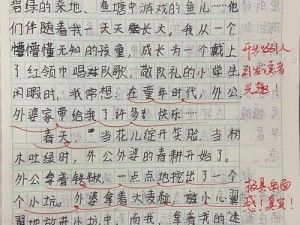 碧绿的菜地、鱼塘中游戏的鱼儿……他
们伴随着我一天天长大，我从一个
懵懵懂懂无知的孩童，成长为一个戴上
了红领巾唱对队歌、敬队礼的小学生
闲暇时，我常想在童年时代，外公、
外婆家带给我了许多快乐……
春天，当花儿绽开笑脸，当树
木吐绿时，外公外婆的春耕开始了。
外公拿着铁锹，一点点地挖出了一个
个小坑。外婆拿着大麦粒，放小心翼
翼地放进小坑中，而我，拿着我的迷
开头
引发读者
兴趣
极具画面
感！真实！